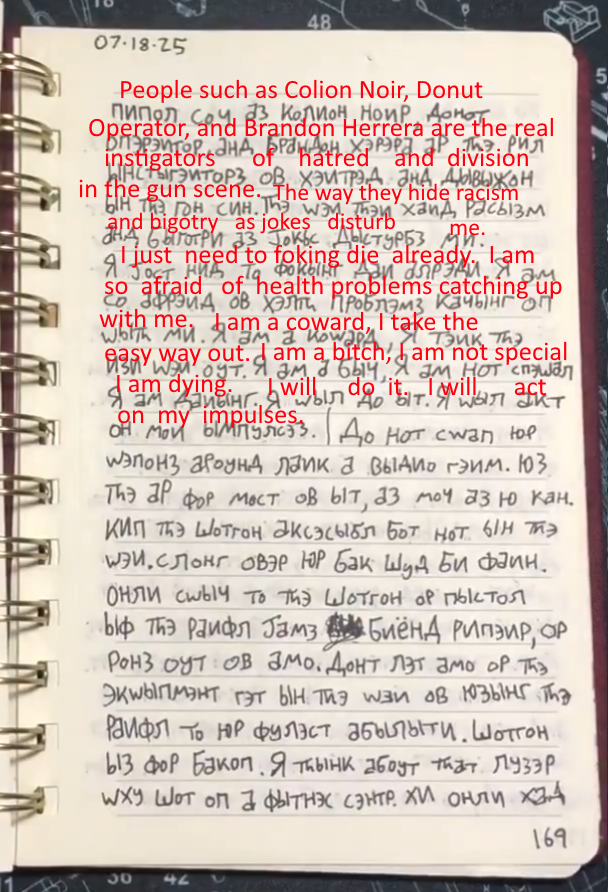 48
07-18-25
People such as Colion Noir, Donut
ПИПОЛ СОЧ АЗ КОЛИОН НОИР ДОНОТ
Operator, and Brandon Herrera are the real
ОПЭРЭИТОР АНД БРАНДОН ХЭРЭРА АР ТНЭ РИЛ
instigators of hatred and division
ЫНСТЫГЭИТОРЗ ОВ ХЭИТРЭД АНД ДЫВЫЖОН
in the gun scene. The way they hide racism
ЫН ТНЭ ГОН СИН. ТНЭ WЭИ ТНЭИ ХАИД РАСЫЗМ
and bigotry as jokes disturb me.
АНД БЫГОТРИ АЗ JОКЫС ДЫСТУРБЗ МИ.
I just need to foking die already. I am
Я JОСТ НИД ТО ФОКЫНГ ДАИ АЛРЭДИ. Я АМ
so afraid of health problems catching up
СО АФРЭИД ОВ ХЭЛТН ПРОБЛЭМЗ КАЧЫНГ ОП
with me. I am a coward, I take the
WЫТН МИ. Я АМ А КОWАРД, Я ТЭИК ТНЭ
easy way out. I am a bitch, I am not special
ИЗИ WЭИ ОУТ. Я АМ А БЫЧ, Я АМ НОТ СПЭШАЛ
I am dying. I will do it. I will act
Я АМ ДАИЫНГ. Я WЫЛ ДО ЫТ. Я WЫЛ АКТ
on my impulses.
ОН МОИ ЫМПУЛСЭЗ. ДО НОТ СWАП ЮР
WЭПОНЗ АРОУНД ЛАИК А ВЫДИО ГЭИМ. ЮЗ
ТНЭ АР ФОР МОСТ ОВ ЫТ, АЗ МОЧ АЗ Ю КАН.
КИП ТНЭ ШОТГОН АКСЭСЫБЛ БОТ НОТ ЫН ТНЭ
WЭИ. СЛОНГ ОВЭР ЮР БАК ШУД БИ ФАИН.
ОНЛИ СWЫЧ ТО ТНЭ ШОТГОН ОР ПЫСТОЛ
ЫФ ТНЭ РАИФЛ JАМЗ БИЁНД РИПЭИР, ОР
РОНЗ ОУТ ОВ АМО. ДОНТ ЛЭТ АМО ОР ТНЭ
ЭКWЫПМЭНТ ГЭТ ЫН ТНЭ WЭИ ОВ ЮЗЫНГ ТНЭ
РАИФЛ ТО ЮР ФУЛЭСТ АБЫЛЫТИ. ШОТГОН
ЫЗ ФОР БАКОП. Я ТНЫНК АБОУТ ТНАТ ЛУЗЭР
WХУ ШОТ ОП А ФЫТНЭС СЭНТР. ХИ ОНЛИ ХАД
169
36 42